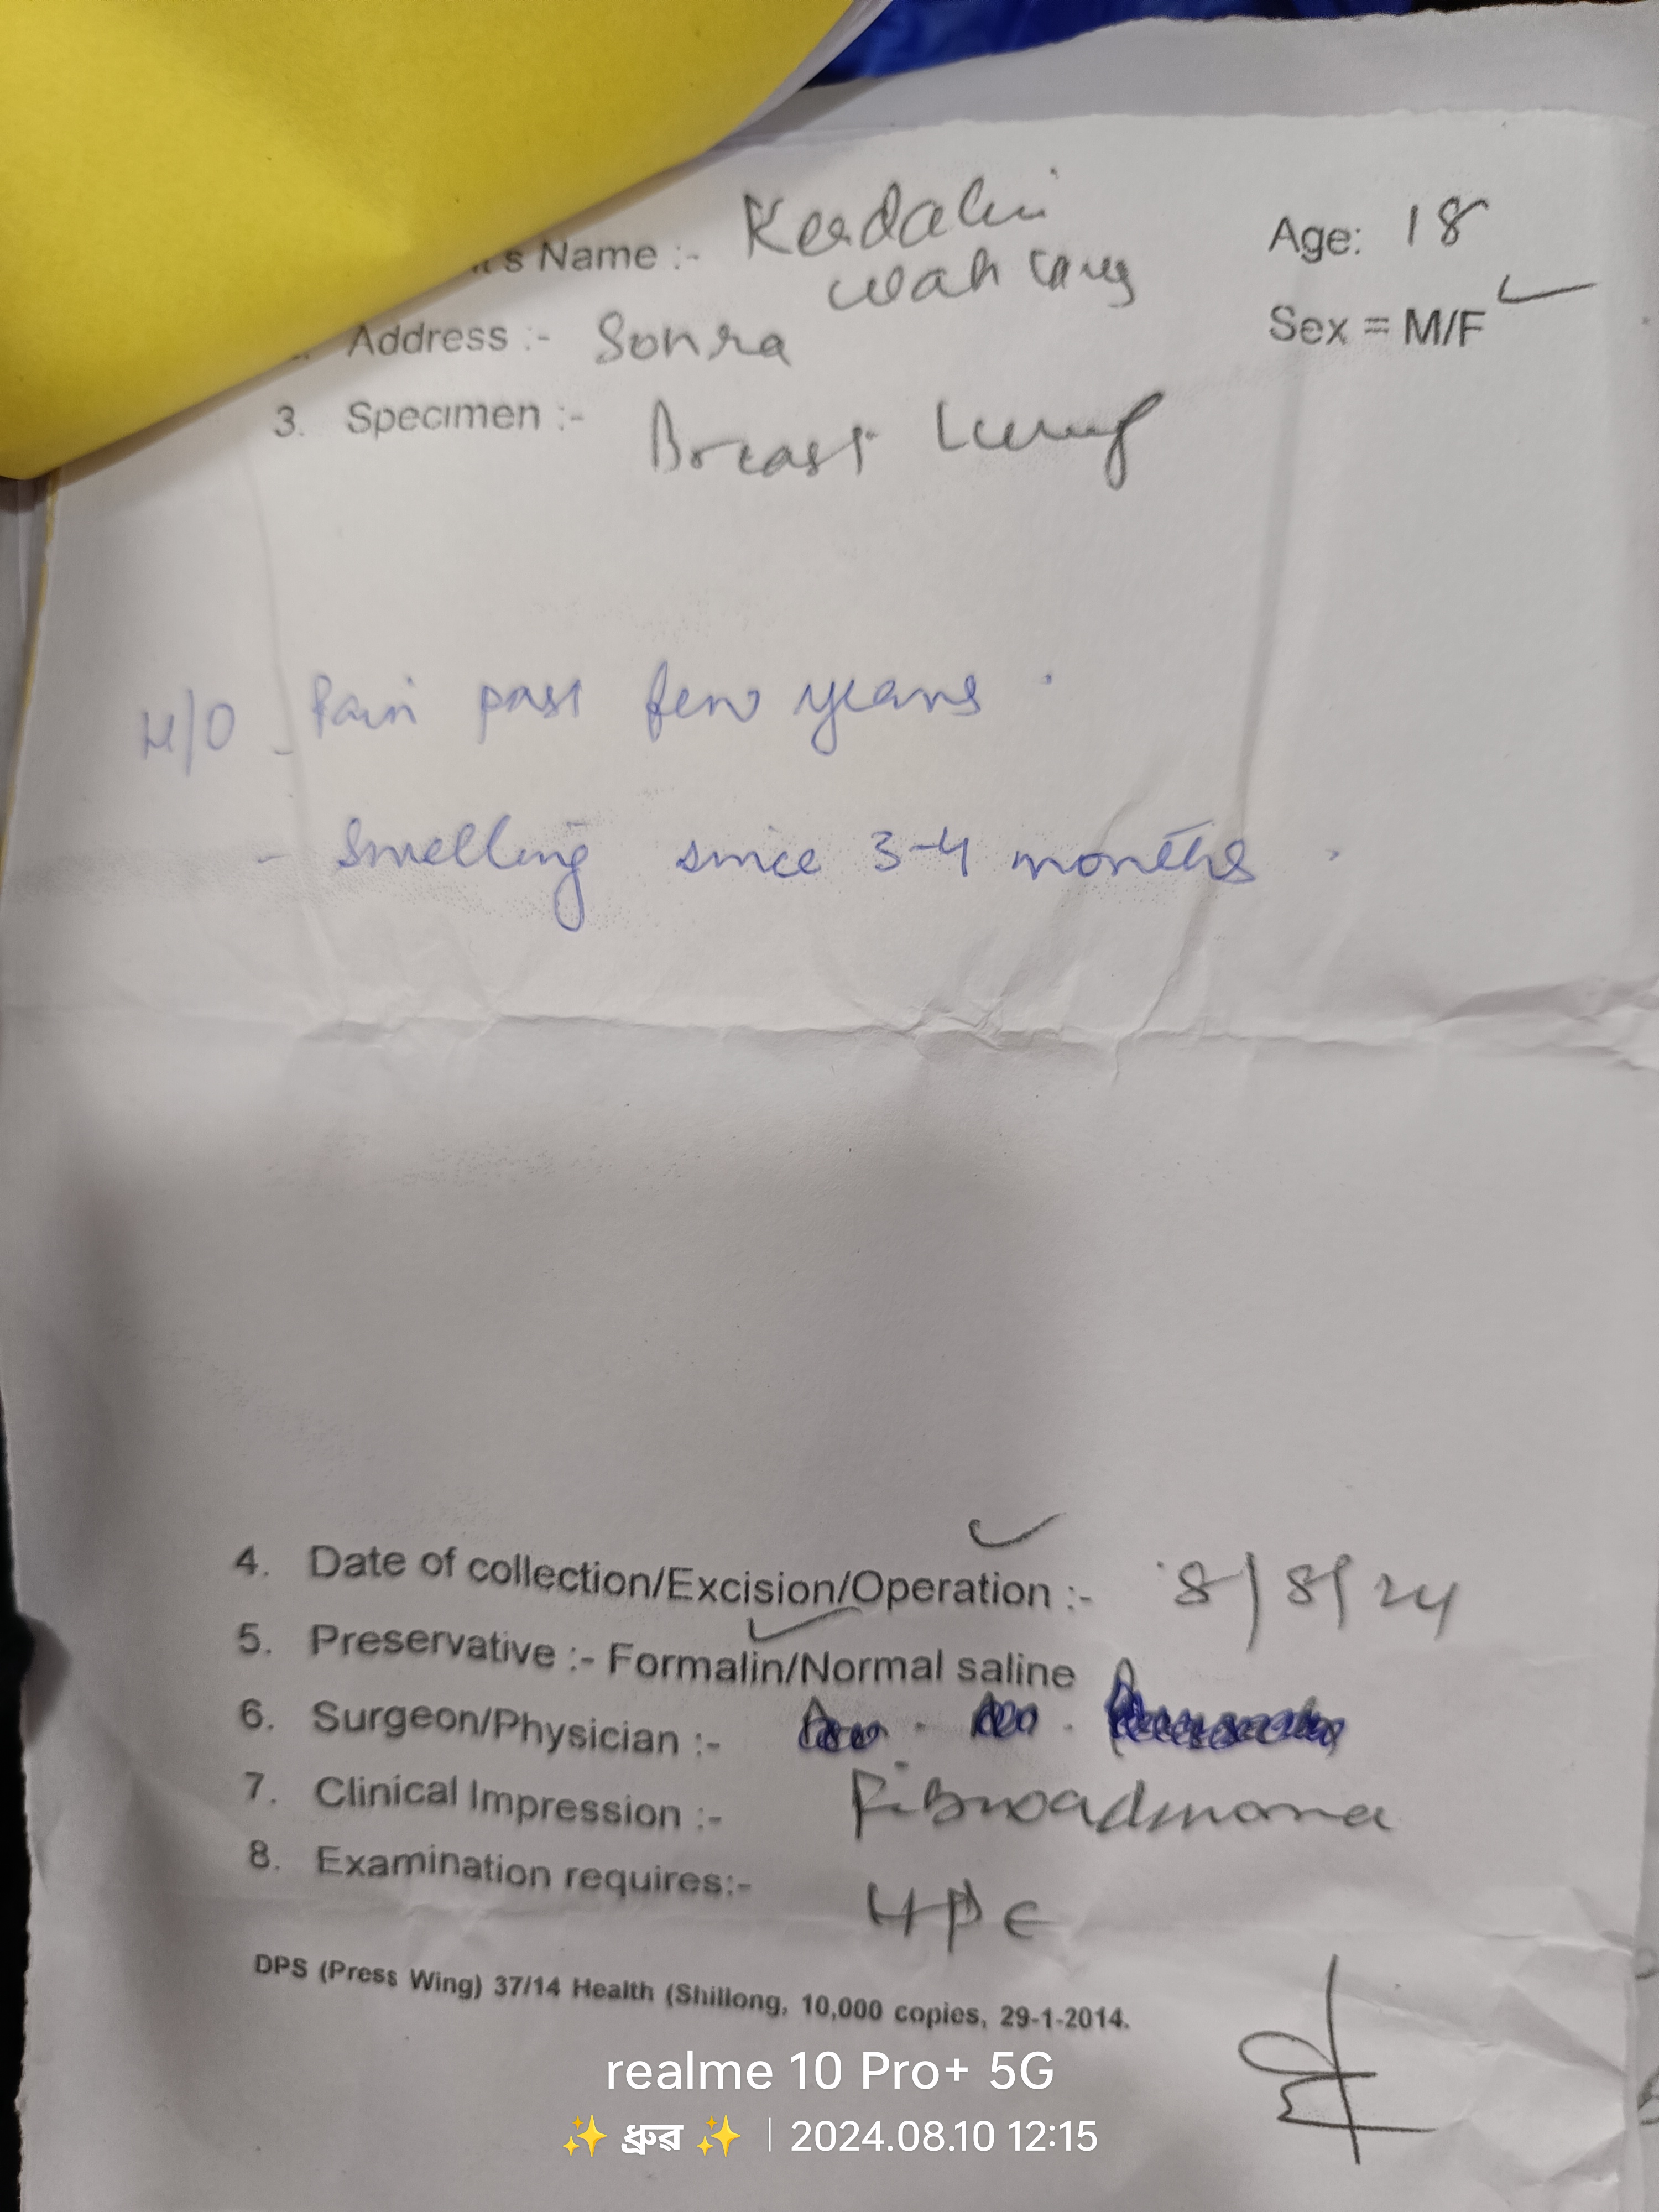 's Name :- Kerdalin Age: 18
Sex = M/F
Address :- Sonra
3. Specimen :- Breast Lump
H/O - Pain past few years .
- Swelling since 3-4 months .
4. Date of collection/Excision/Operation :- 8/8/24
5. Preservative :- Formalin/Normal saline
6. Surgeon/Physician :-
7. Clinical Impression :- Fibroadenoma
8. Examination requires:- HPE
DPS (Press Wing) 37/14 Health (Shillong, 10,000 copies, 29-1-2014.
realme 10 Pro+ 5G
✨ ধ্ৰুৱ ✨ | 2024.08.10 12:15